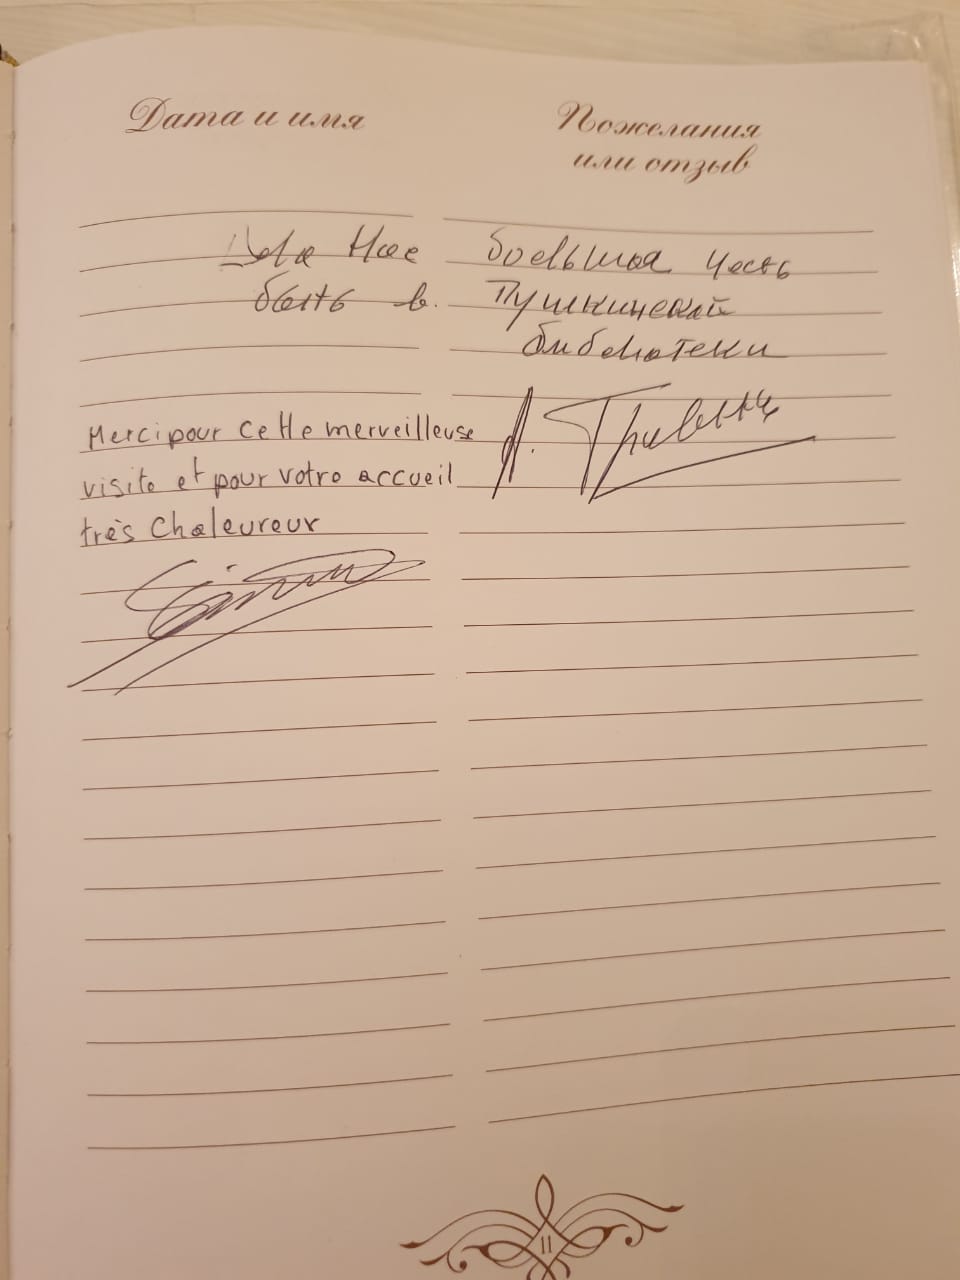 Дата и имя
Пожелания
или отзыв
Для Нас большая честь
быть в Пушкинской
библиотеки
Merci pour cette merveilleuse
visite et pour votre accueil
très Chaleureux
11